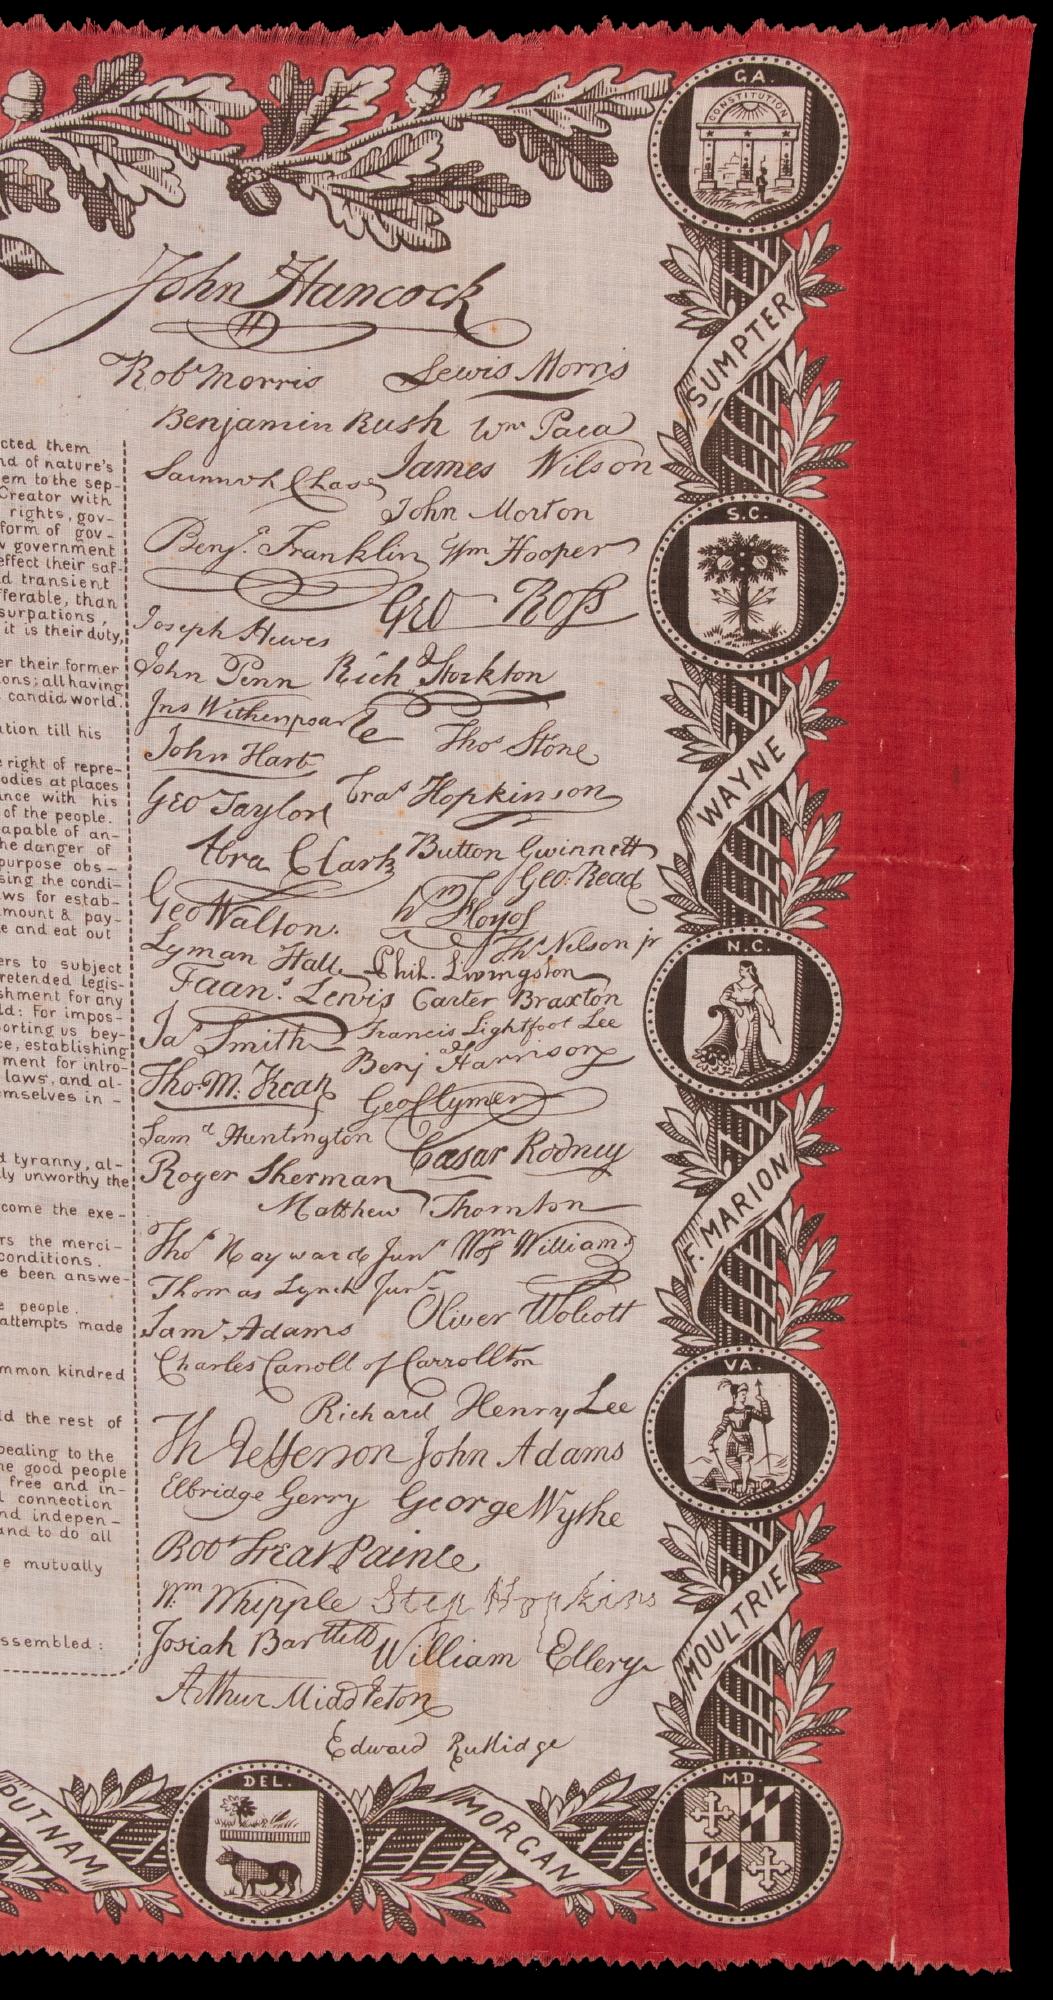 cted them
nd of nature's
em to the sep-
Creator with
rights, gov-
form of gov-
w government
effect their saf-
d transient
fferable, than
surpations,
it is their duty,
er their former
ons; all having
candid world.
ation till his
e right of repre-
odies at places
ance with his
of the people.
apable of an-
he danger of
purpose obs-
sing the condi-
ws for estab-
mount & pay-
e and eat out
ers to subject
retended legis-
shment for any
ld: For impos-
porting us bey-
ce, establishing
ment for intro-
laws, and al-
mselves in -
d tyranny, al-
lly unworthy the
come the exe-
rs the merci-
conditions.
e been answe-
e people.
attempts made
mmon kindred
ld the rest of
pealing to the
he good people
free and in-
l connection
nd indepen-
and to do all
e mutually
ssembled:
John Hancock
Robt Morris Lewis Morris
Benjamin Rush Wm Paca
Samuel Chase James Wilson
John Morton
Benj. Franklin Wm Hooper
Geo Ross
Joseph Hewes
John Penn Richd Stockton
Jno Witherspoon
Thos Stone
John Hart
Geo Taylor Fras Hopkinson
Abra Clark Button Gwinnett
Geo. Read
Geo Walton. Wm Floyd
Ths Nelson jr
Lyman Hall Phil. Livingston
Faans. Lewis Carter Braxton
Jas Smith Francis Lightfoot Lee
Benj Harrison
Tho. M. Kean
Geo Clymer
Samd Huntington
Casar Rodney
Roger Sherman
Matthew Thornton
Thos Hayward Junr Wm Williams
Thomas Lynch Junr
Oliver Wolcott
Saml Adams
Charles Carroll of Carrollton
Richard Henry Lee
Th Jefferson John Adams
Elbridge Gerry George Wythe
Robt Treat Paine
Wm Whipple Step Hopkins
Josiah Bartlett William Ellery
Arthur Middleton
Edward Rutlidge
GA.
CONSTITUTION
SUMPTER
S.C.
WAYNE
N.C.
F. MARION
VA.
MOULTRIE
MD.
PUTNAM
DEL.
MORGAN